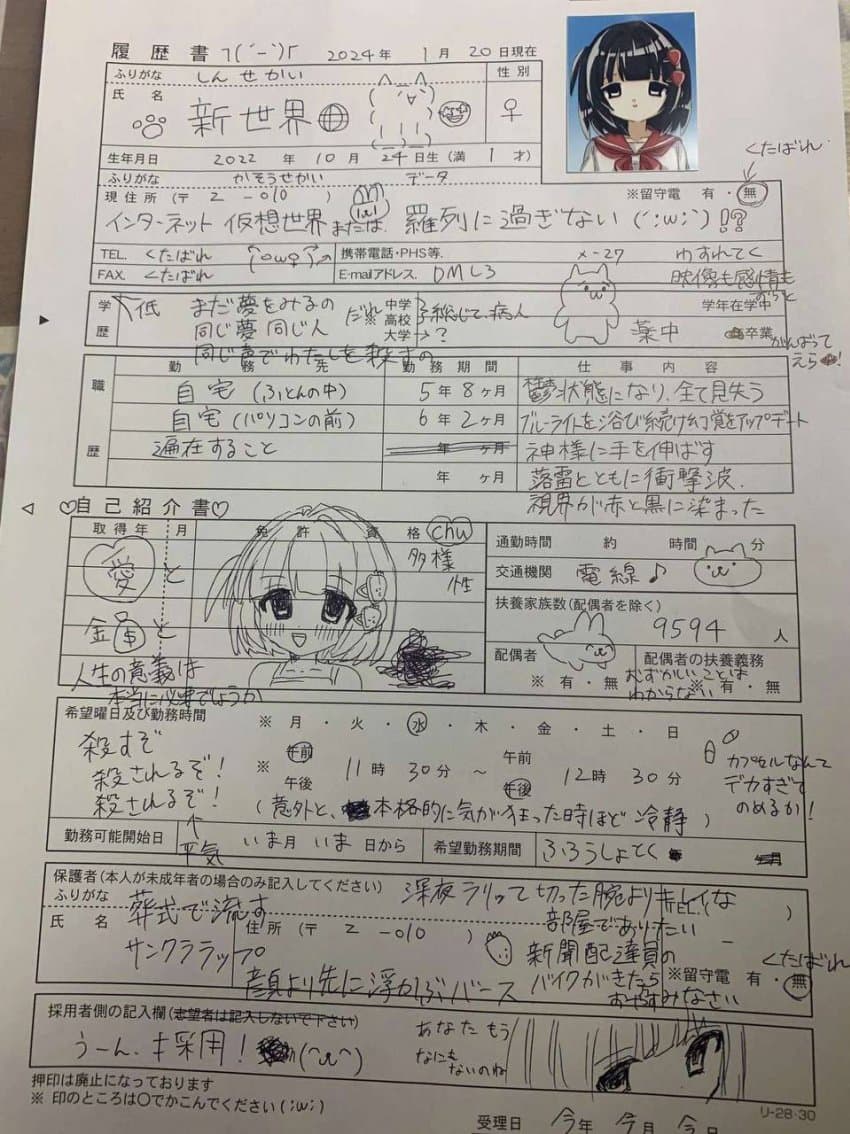 履歴書 ┐(´-`)┌ 2024年 1月 20日現在
ふりがな しんせかい 性別
氏名 新世界 ♀
生年月日 2022年 10月 24日生(満 1才)
ふりがな かそうせかい データ
くたばれ
現住所(〒 2-010) ※留守電 有・無
インターネット 仮想世界 または 羅列に過ぎない(´;ω;`)!?
TEL. くたばれ
携帯電話・PHS等.
メ-27
わすれてく
FAX. くたばれ
E-mailアドレス. DML3
映像も感情も
ずらと
学歴 低 まだ夢をみるの
だれ
※ 中学 高校 大学
総じて、病人
→?
学年在学中
同じ夢 同じ人
薬中
卒業
同じ声でわたしを殺すの
がんばって
えら!
職歴 勤務先 勤務期間 仕事内容
自宅(ふとんの中) 5年8ヶ月 鬱状態になり、全て見失う
自宅(パソコンの前) 6年2ヶ月 ブルーライトを浴び続け幻覚をアップデート
遍在すること 年 ヶ月 神様に手を伸ばす
年 ヶ月 落雷とともに衝撃波、
視界が赤と黒に染まった
♡自己紹介書♡
取得年 月 免許 資格
chu
多様性
愛と
金車と
人生の意義は
本当に必要でしょうか
通勤時間 約 時間 分
交通機関 電線♪
扶養家族数(配偶者を除く)
9594人
配偶者 ※有・無
配偶者の扶養義務 ※有・無
むずかしいことは
わからない
希望曜日及び勤務時間 ※月・火・水・木・金・土・日
殺すぞ
殺されるぞ!
殺されるぞ!
↑
平気
※ 午前 午後 11時30分 ~ 午前 午後 12時30分
カプセルなんて
デカすぎて
のめるか!
(意外と、本格的に気が狂った時ほど冷静)
勤務可能開始日 いま月 いま日から 希望勤務期間 ふろうしょとく
保護者(本人が未成年者の場合のみ記入してください)
ふりがな
氏名
葬式で流す
サンクララップ
住所(〒 2-010)
TEL.( )
深夜ラリって切った腕よりキレイな
部屋でありたい
新聞配達員の
バイクがきたら
おやすみなさい
顔より先に浮かぶバース
※留守電 有・無
くたばれ
採用者側の記入欄(志望者は記入しないで下さい)
うーん、採用!
あなた もう
なにも
ないのね
押印は廃止になっております
※ 印のところは○でかこんでください(;w;)
リ-28・30
受理日 今年 今月 今日